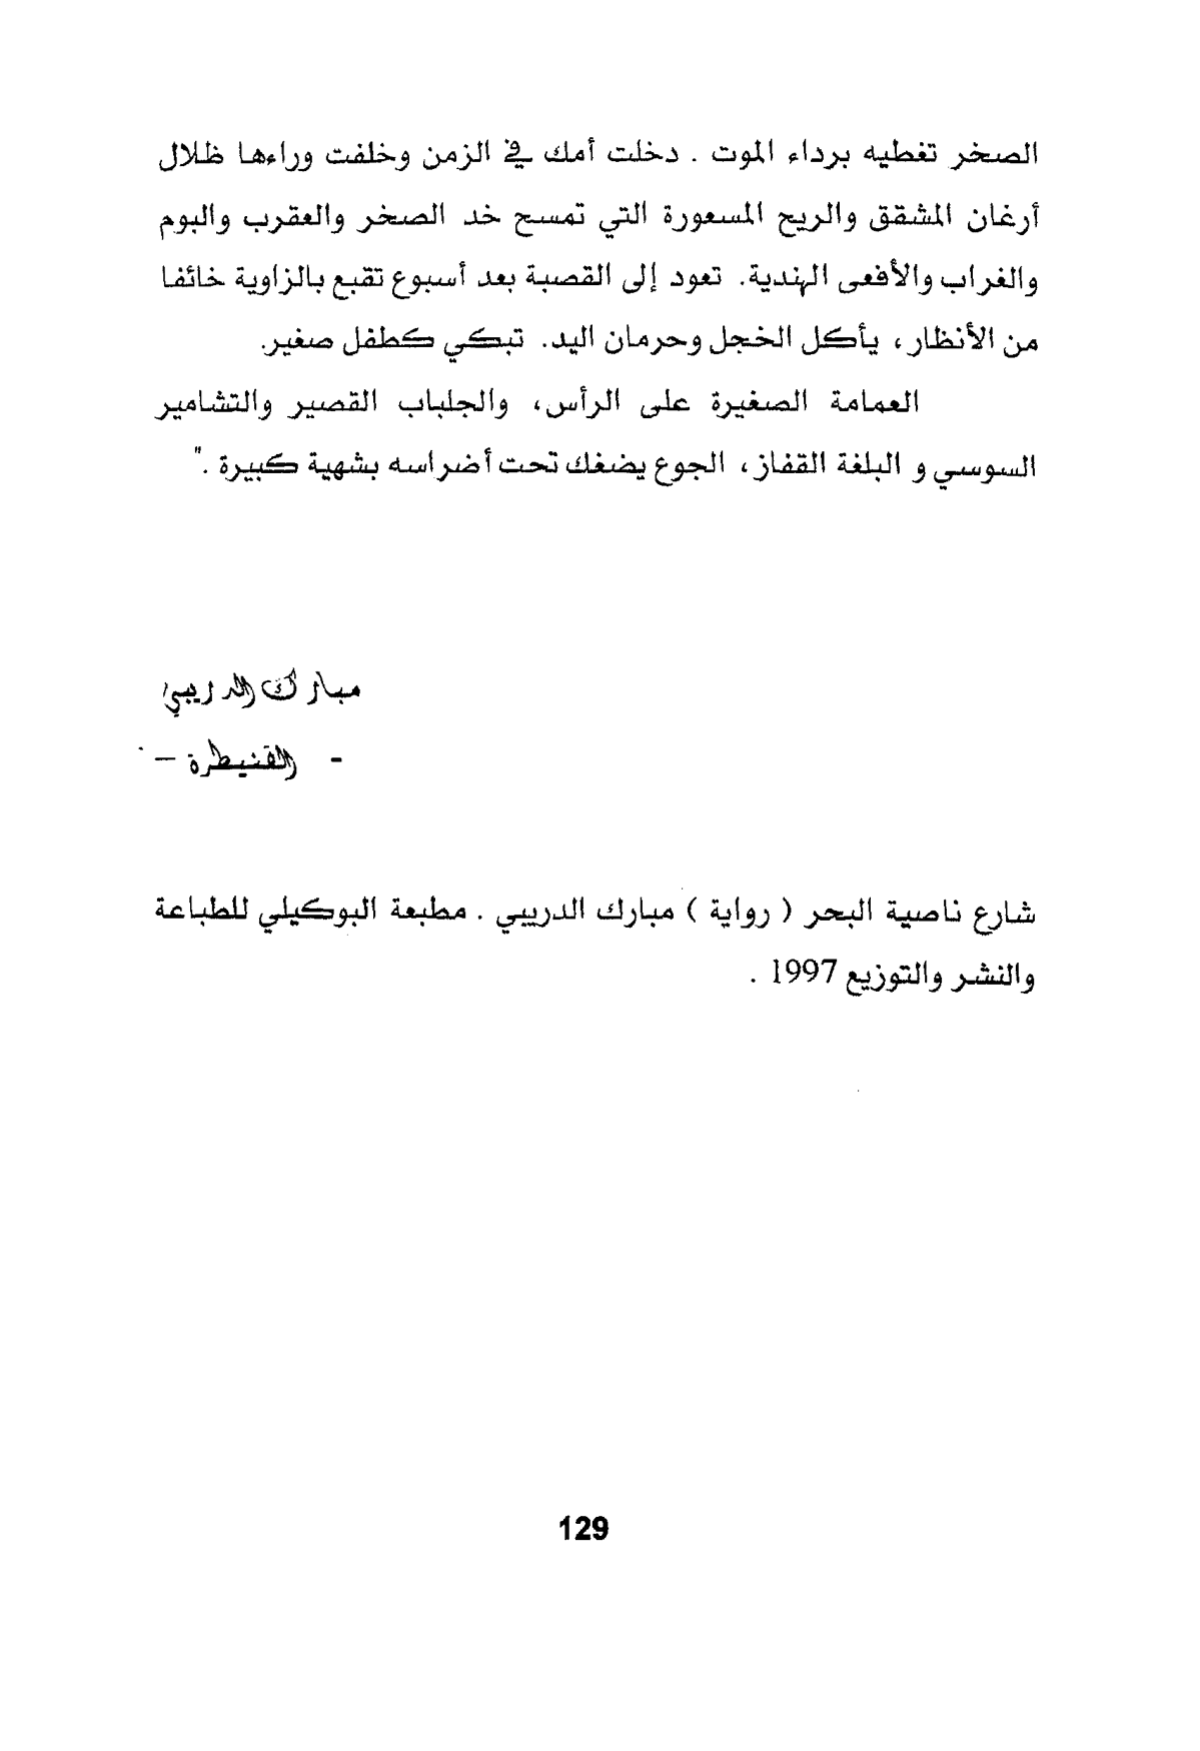 الصخر تغطيه برداء الموت . دخلت أمك في الزمن وخلفت وراءها ظلال
أرغان المشقق والريح المسعورة التي تمسح خد الصخر والعقرب والبوم
والغراب والأفعى الهندية. تعود إلى القصبة بعد أسبوع تقبع بالزاوية خائفا
من الأنظار، يأكل الخجل وحرمان اليد. تبكي كطفل صغير.
العمامة الصغيرة على الرأس، والجلباب القصير والتشامير
السوسي و البلغة القفاز، الجوع يضغك تحت أضراسه بشهية كبيرة ."
مبارك الدريبي
- القنيطرة –
شارع ناصية البحر ( رواية ) مبارك الدريبي . مطبعة البوكيلي للطباعة
والنشر والتوزيع 1997 .
129